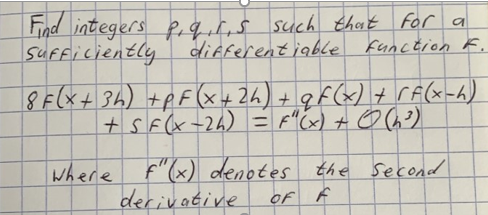 Find integers p,q,r,s such that for a
sufficiently differentiable function F.
8F(x+3h) + pF(x+2h) + qF(x) + rF(x-h)
+ sF(x-2h) = F"(x) + O(h³)
where f"(x) denotes the second
derivative of f